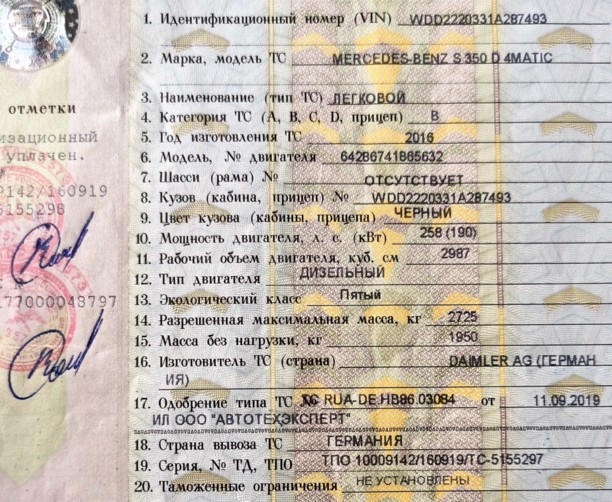 1. Идентификационный номер (VIN) WDD2220331A287493
2. Марка, модель ТС MERCEDES-BENZ S 350 D 4MATIC
отметки
3. Наименование (тип ТС) ЛЕГКОВОЙ
4. Категория ТС (A, B, C, D, прицеп) B
изационный
5. Год изготовления ТС 2016
уплачен.
6. Модель, № двигателя 64286741865632
7. Шасси (рама) № ОТСУТСТВУЕТ
9142/160919
8. Кузов (кабина, прицеп) № WDD2220331A287493
5155298
9. Цвет кузова (кабины, прицепа) ЧЕРНЫЙ
10. Мощность двигателя, л. с. (кВт) 258 (190)
11. Рабочий объем двигателя, куб. см 2987
12. Тип двигателя ДИЗЕЛЬНЫЙ
13. Экологический класс Пятый
77000048797
14. Разрешенная максимальная масса, кг 2725
15. Масса без нагрузки, кг 1950
16. Изготовитель ТС (страна) DAIMLER AG (ГЕРМАН
ИЯ)
17. Одобрение типа ТС № ТС RUA-DE.НВ86.03084 от 11.09.2019
ИЛ ООО "АВТОТЕХЭКСПЕРТ"
18. Страна вывоза ТС ГЕРМАНИЯ
19. Серия, № ТД, ТПО ТПО 10009142/160919/ТС-5155297
20. Таможенные ограничения НЕ УСТАНОВЛЕНЫ